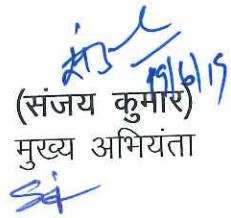 19/6/19
(संजय कुमार)
मुख्य अभियंता